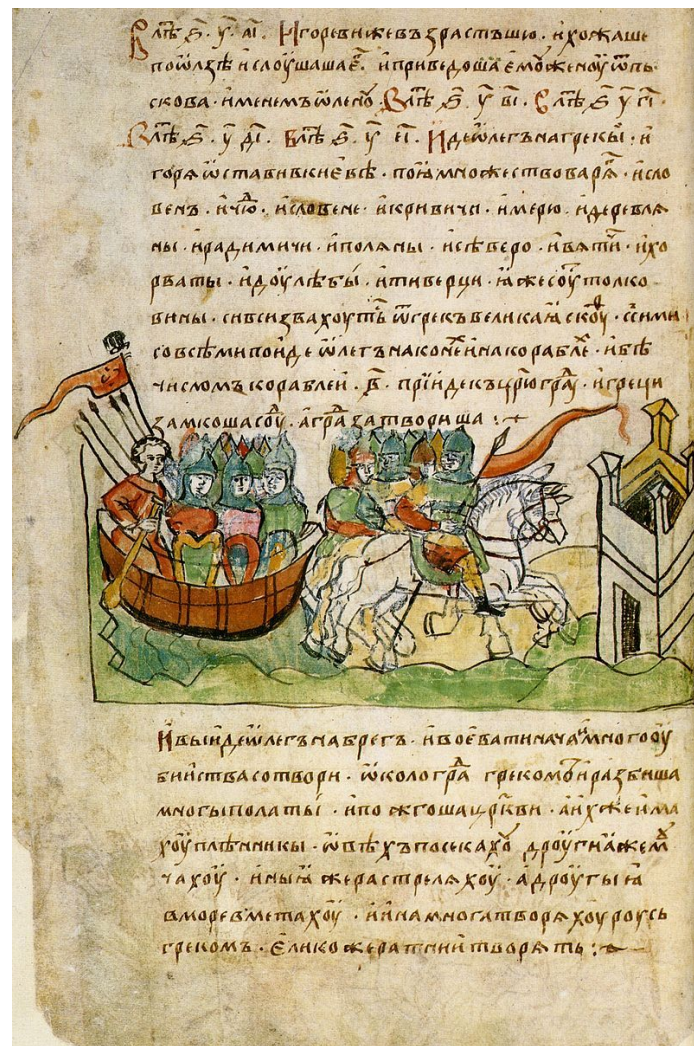 В лѣт҃ ҂ѕ҃. у҃. а҃і. Игоревижевъзрастъшю. ихожаше
поѡлзѣ ислоушаша е҆г. иприведоша ємоуженоу ѿпь
скова. именемъѡлено҆у. В лѣт҃ ҂ѕ҃ у҃ в҃і. В лѣт҃ ҂ѕ҃ у҃ г҃і
В лѣт҃ ҂ѕ҃. у҃ д҃і. В лѣт҃ ҂ѕ҃. у҃ е҃і. Идеѡлегънагрекы. и
горѧ ѡставивкиевѣ. поꙗмножествоварѧг. исло
венъ. ичю҆д. исловене. икривичи. имерю. идеревлѧ
ны. ирадимичи. иполѧны. исѣверо. ивѧтичи. ихо
рваты. идоулѣбы. итиверци. ꙗжесоутолко
вины. сивсизвахоутьсѧ ѿгрекъ великаꙗ скоуф. ссими
совсѣмипоиде ѡлегънаконехинакораблех. ибѣ
числомъкораблей. ҂в҃. прїидекъцр҃югра҆ду. игреци
замкошасоуд. аградзатвориша :~
Ивыидеѡлегънабрегъ. ивоеватинача. имногооу
бийствасотвори. ѡкологра҆да грекомъ. иразбиша
многыполаты. ипожгошацр҃кви. аихжеима
хоуплѣнникы. ѡвѣхъпосекахоу. дроугиꙗжемоу
чахоу. иныꙗ жерастрелѧхоу. адроугыꙗ
вморевметахоу. иинамногатворѧхоуроусь
грекомъ. Еликожератнии творѧть :~